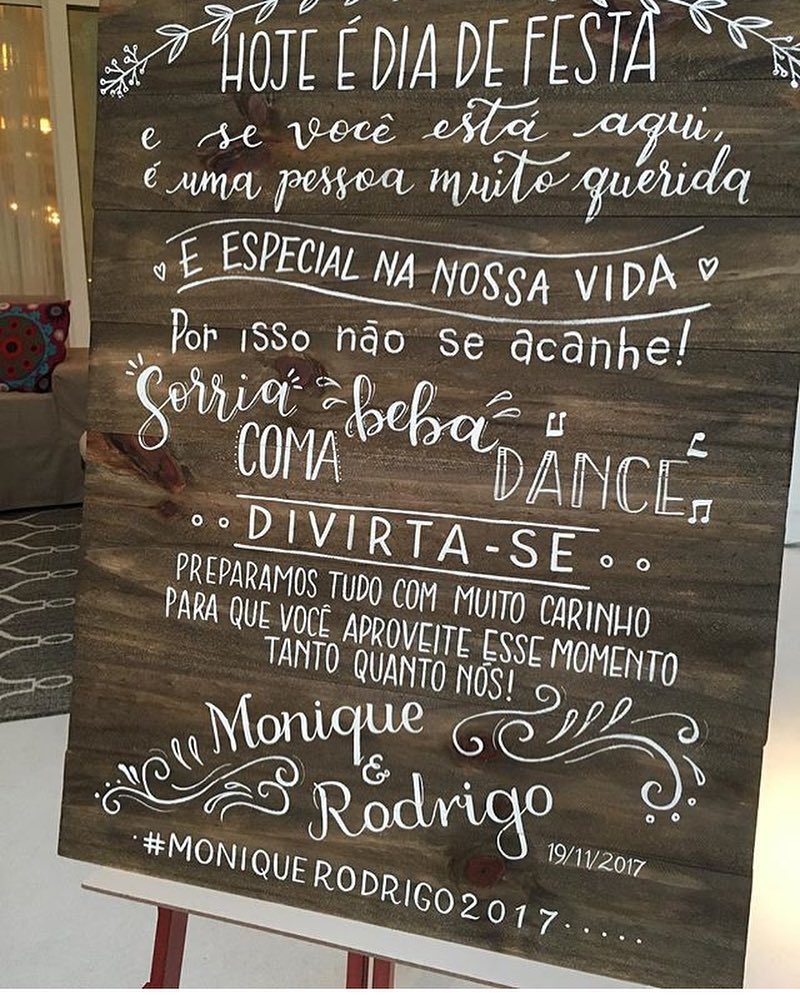 HOJE É DIA DE FESTA
e se você está aqui,
é uma pessoa muito querida
E ESPECIAL NA NOSSA VIDA
Por isso não se acanhe!
Sorria beba
COMA DANCE
DIVIRTA-SE
PREPARAMOS TUDO COM MUITO CARINHO
PARA QUE VOCÊ APROVEITE ESSE MOMENTO
TANTO QUANTO NÓS!
Monique
&
Rodrigo
19/11/2017
#MONIQUERODRIGO2017.....